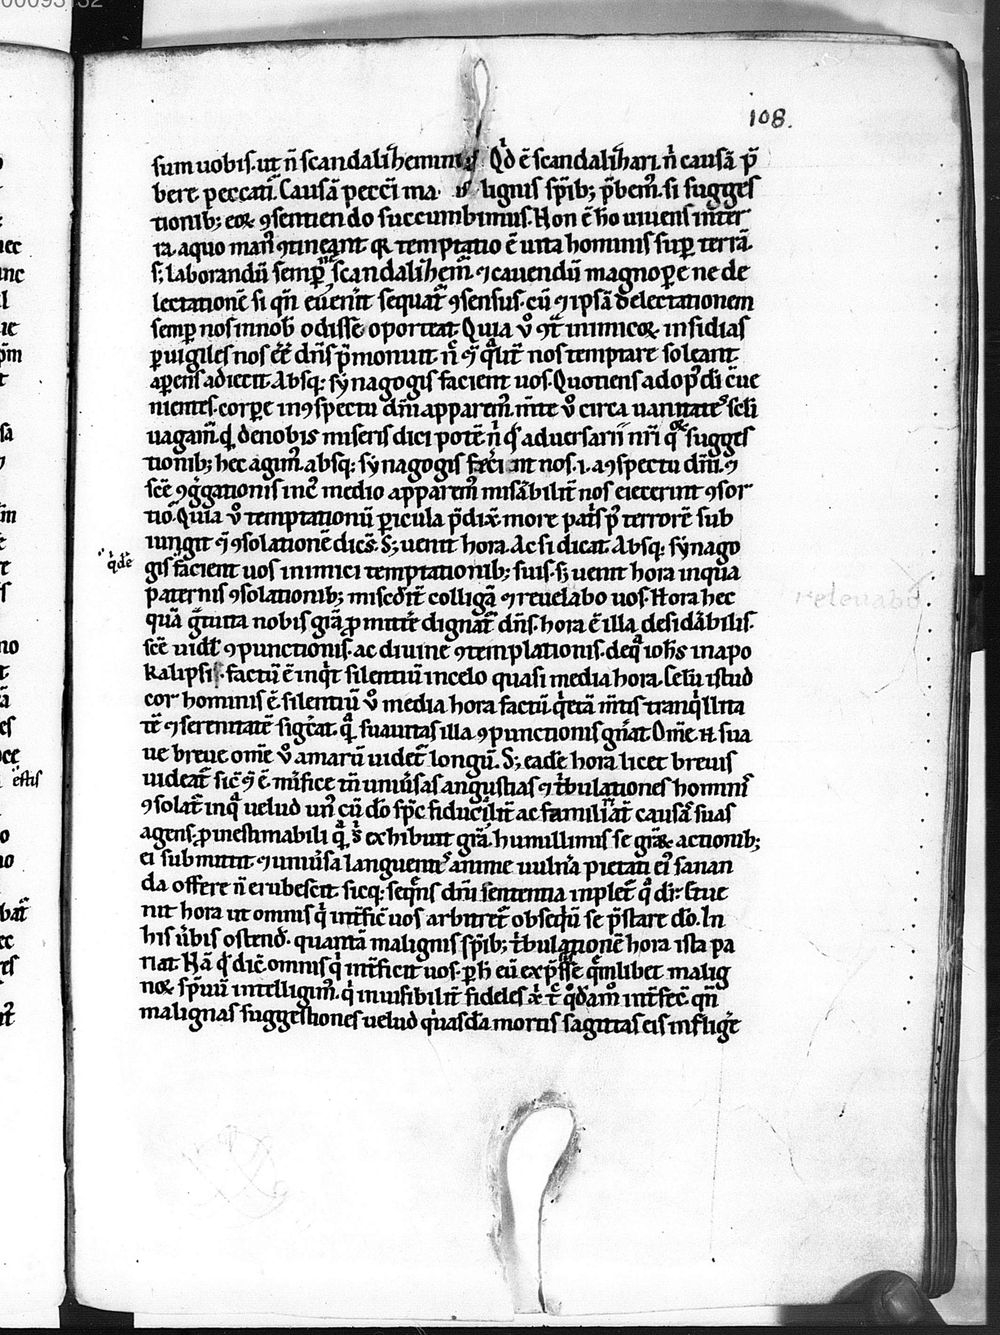 108.
sum uobis. ut n̄ scandalizemini. Qđ ē scandalizari. ṅ causā p̄
bere peccati. Causā pecc̄i ma lignis sp̄ib; p̄bem᷒. si sugges
tionib; eoꝝ ꝯsentiendo succumbimus. Non ē h̊o uiuens inter
ra. a quo man᷒ ꝯtineant᷒ q̄ temptatio ē uita hominis sup̄ terrā.
s; laborandū semp̄ scandalizem᷒ ⁊ cauendū magnop̄e ne de
lectationē si qn̄ euen̄it sequat᷒ ꝯsensus. cū ⁊ ipsā delectationem
semp̄ nos in nob̄ odisse oporteat. Quia ů ꝯt̄ inimicoꝝ insidias
ꝑuigiles nos ee᷒ dn̄s p̄monuit n̄ q̄lit̄ nos temptare soleant
aꝑiens adiecit. Absq; synagogis facient uos. Quotiens ad op᷒ di c̄ue
nientes. corꝑe in ꝯspectu dn̄i apparem᷒. m̄te ů circa uanitatē sc̄li
uagam᷒. qđ de nobis miseris dici potē. ṅ qđ aduersarii nr̄i q̊ꝝ sugges
tionib; hec agim᷒. absq; synagogis faciunt nos .i. a ꝯspectu dn̄i. ⁊
sc̄e ꝯg̊gationis in c᷒ medio apparem᷒ mis̄abilit̄ nos eiecerint ꝯsor
tio. Quia ů temptationū ꝑicula p̄dix̄ more pat̄s p᷒ terrorē sub
iungit ⁊ ꝯsolationē dic̄s. S; uenit hora. Ac si dicat. Absq; synago
q̊dē
gis facient uos inimici temptationib; suis. s; uenit hora inqua
paternis ꝯsolationib; miscdit̄ colligā ⁊ reuelabo uos. Hora hec
relevabo
quā g̊tuita nobis gr̄a ꝓmitt̄e dignat᷒ dn̄s. hora ē illa desid̄abilis.
sc̄e uidl̄t ꝯpunctionis. ac diuine ꝯtemplationis. de q̊ ioh̄s in apo
kalipsi. factū ē inq̇t silentiū in celo quasi media hora. Celū istud
cor hominis ē. silentiū ů media hora factū. q̇etā m̄tis tranq̇llita
tē ⁊ serenitatē sig᷒cat. q̊ suauitas illa ꝯpunctionis gn̄at. Om̄e ⁊ sua
ue breue om̄e ů amarū uidet᷒ longū. S; eadē hora licet breuis
uideat᷒ sic᷒ ⁊ ē. mīfice tn̄ uniu᷒sas angustias ⁊ t̄bulationes hominis
ꝯsolat᷒ inq̊ uelud un᷒ cū do sp̄c fiducialit̄ ac familiāt̄ causas suas
agens. ꝓ inestimabili q̊ s exhibuit gr̄a. humillimis se gr̄aꝝ actionib;
ei submittit ⁊ uniu᷒sa languentis anime uuln̄a pietati ei᷒ sanan
da offere n̄ erubescit. sicq; seq̄ns dn̄i sententia inplet᷒ q̊ dr̄. Et ue
nit hora ut omnis q̇ int̄fic̄ uos arbitret᷒ obseq̇ū se p̄stare do. In
his u᷒bis ostend̄. quantā malignis sp̄ib; t̄bulationē hora ista pa
riat. Nā qđ dic̄. omnis q̇ int̄ficit uos. ꝑ h̄ eū exp̄sse q̄mlibet malig
noꝝ sp̄uū intelligim᷒. q̇ inuisibilit̄ fideles x̄ t̄c q̊dam᷒ int̄fec̄. qn̄
malignas suggestiones uelud q̇asdā mortis sagittas eis inflig᷒e
estis